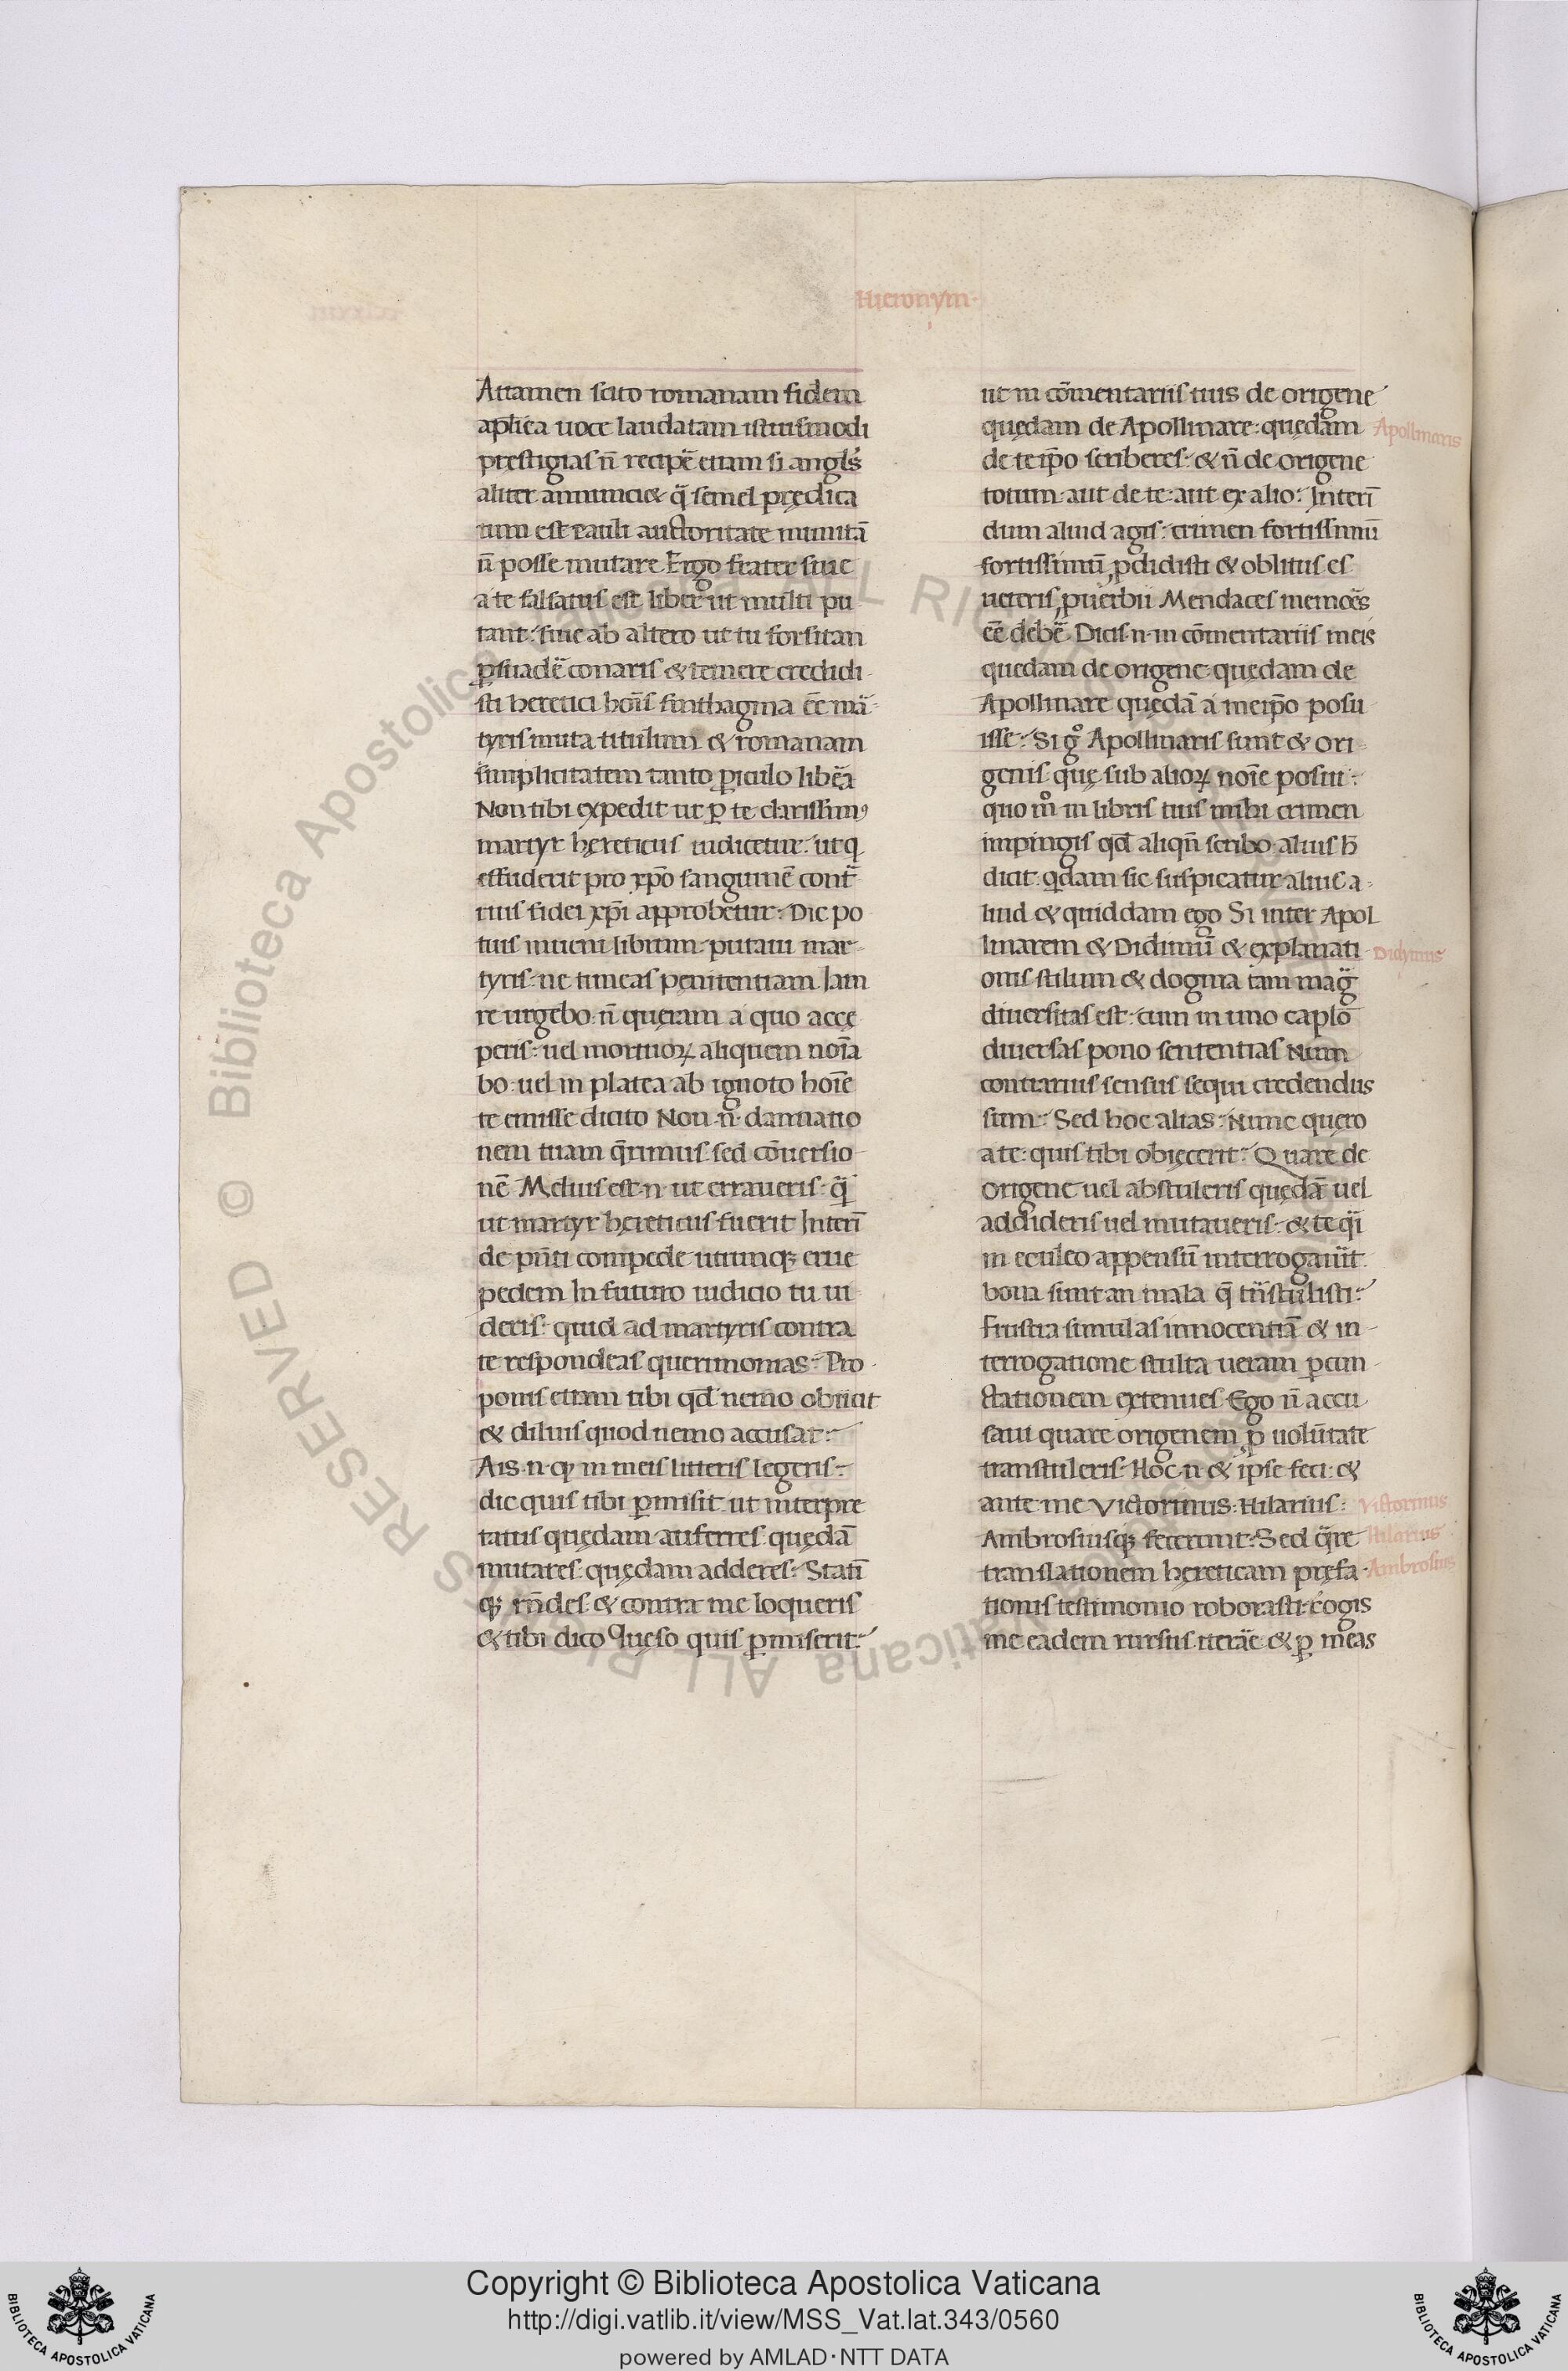 Hieronym·
Attamen scito romanam fidem
aplica uoce laudatam istiusmodi
prestigias n̄ recipē etiam si angls̄
aliter annunciet q̄ semel prędica
tum est pauli auctoritate munitā
n̄ posse mutare Ergo frater siue
a te falsatus est liber ut multi pu
tant: siue ab altero ut tu forsitan
ꝑsuadē conaris & temere credidi
sti heretici hoīs sinthagma eē mā
tyris muta titulum & romanam
simplicitatem tanto ꝑiculo libēa
Non tibi expedit ut ꝑ te clarissimꝰ
martyr hęreticus iudicetur: ut q
effuderit pro xp̄o sanguinē cont̄
rius fidei xp̄i approbetur: Dic po
tius inueni librum putaui mar
tyris: ne timeas penitentiam Iam
te urgebo: n̄ queram a quo accę
peris: uel mortuoꝝ aliquem noīa
bo: uel in platea ab ignoto hoīe
te emisse dicito Non n̄ damnatio
nem tuam q̄rimus: sed cōuersio
nē Melius est n̄ ut erraueris: q̄
ut martyr hęreticus fuerit Interī
de pn̄ti compede utiunqꝫ erue
pedem In futuro iudicio tu ui
deris: quid ad martyris contra
te respondeas querimonias: Pro
ponis etiam tibi qd̄ nemo obiicit
& diluis quod nemo accusat:
Ais ·n· qꝫ in meis litteris legeris:
dic quis tibi ꝑmisit ut interpre
tatus quędam auferres quędā
mutares: quędam adderes: Statī
qꝫ rn̄des: & contra me loqueris
& tibi dico Quęso quis ꝑmiserit:
ut in cōmentariis tuis de origene
quędam de Apollinare: quędam
de te ip̄o scriberes: & n̄ de origene
totum: aut de te: aut ex alio: Interī
dum aliud agis: crimen fortissimū
fortissimū ꝓdidisti & oblitus es
ueteris ꝓuerbii Mendaces memōs
eē debē Dicis ·n· in cōmentariis meis
quędam de origene quędam de
Apollinare quędā a meip̄o posu
isse: Si gͦ Apollinaris sunt & ori
genis quę sub alioꝝ noīe posui:
quo mͦ in libris tuis mihi crimen
impingis qd̄ aliqn̄ scribo alius h̄
dicit: qdam sic suspicatur alius a
liud & quiddam ego Si inter Apol
linarem & Didimū & explanati
onis stilum & dogma tam mag̈
diuersitas est: cum in uno caplo
diuersas pono sententias Num
contrarius sensus sequi credendus
sum: Sed hoc alias: Nunc quęro
a te: quis tibi obięcerit: Quare de
origene uel abstuleris quędā uel
addideris uel mutaueris: & te q̄i
in eculeo appensū interrogauīt
bona sint an mala q̄ tn̄stulisti:
Frustra simulas innocentiā & in
terrogatione stulta ueram ꝑcun
ctationem extenues Ego n̄ accu
saui quare origenem ꝑ uolūtate
transtuleris: Hoc ·n· & ipse feci: &
ante me Victorinus: Hilarius:
Ambrosiusqꝫ fecerunt: Sed q̄re
translationem hęreticam pręfa
tionis testimonio roborasti: cogis
me eadem rursus iterāe & ꝑ meas
Apollinaris
Didymus
Victorinus
Hilarius
Ambrosius
© Biblioteca Apostolica Vaticana ALL RIGHTS RESERVED
Copyright © Biblioteca Apostolica Vaticana
http://digi.vatlib.it/view/MSS_Vat.lat.343/0560
powered by AMLAD·NTT DATA
BIBLIOTECA APOSTOLICA VATICANA
BIBLIOTECA APOSTOLICA VATICANA